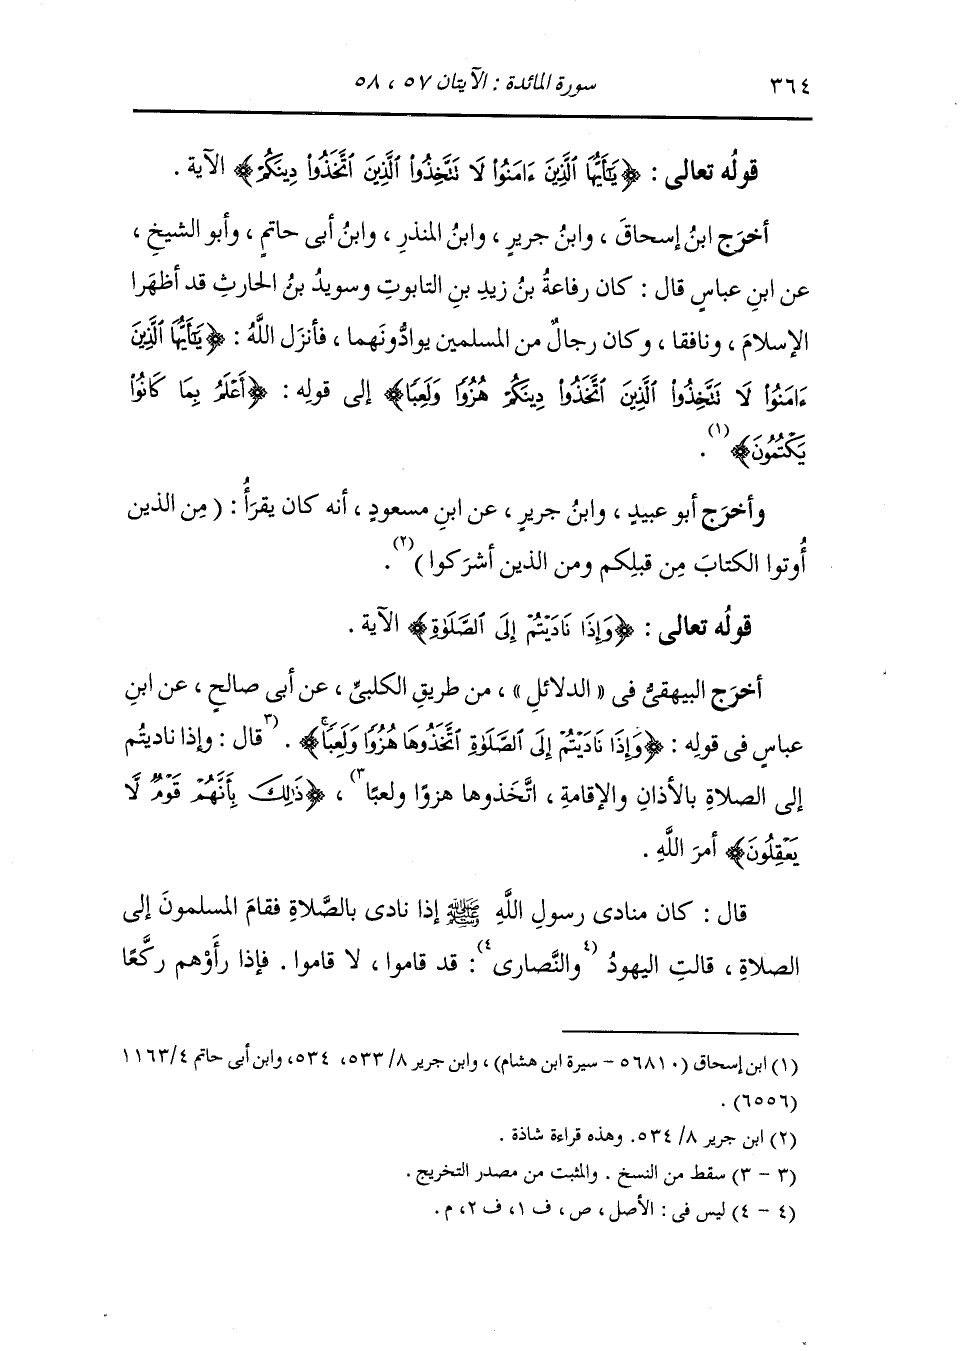 ٣٦٤
سورة المائدة : الآيتان ٥٧ ، ٥٨
قولُه تعالى : ﴿يَٰٓأَيُّهَا ٱلَّذِينَ ءَامَنُوا۟ لَا تَتَّخِذُوا۟ ٱلَّذِينَ ٱتَّخَذُوا۟ دِينَكُمْ﴾ الآية .
أخرَج ابنُ إسحاقَ ، وابنُ جريرٍ ، وابنُ المنذرِ ، وابنُ أبى حاتمٍ ، وأبو الشيخِ ،
عن ابنِ عباسٍ قال : كان رفاعةُ بنُ زيدِ بنِ التابوتِ وسويدُ بنُ الحارثِ قد أظهَرا
الإسلامَ ، ونافقا ، وكان رجالٌ من المسلمين يوادُّونَهما ، فأنزل اللَّهُ : ﴿يَٰٓأَيُّهَا ٱلَّذِينَ
ءَامَنُوا۟ لَا تَتَّخِذُوا۟ ٱلَّذِينَ ٱتَّخَذُوا۟ دِينَكُمْ هُزُوًا وَلَعِبًا﴾ إلى قولِه : ﴿أَعْلَمُ بِمَا كَانُوا۟
يَكْتُمُونَ﴾(١) .
وأخرَج أبو عبيدٍ ، وابنُ جريرٍ ، عن ابنِ مسعودٍ ، أنه كان يقرَأُ : ( مِن الذين
أُوتوا الكتابَ مِن قبلِكم ومن الذين أشرَكوا )(٢) .
قولُه تعالى : ﴿وَإِذَا نَادَيْتُمْ إِلَى ٱلصَّلَوٰةِ﴾ الآية .
أخرَج البيهقىُّ فى « الدلائلِ » ، من طريقِ الكلبىِّ ، عن أبى صالحٍ ، عن ابنِ
عباسٍ فى قولِه : ﴿وَإِذَا نَادَيْتُمْ إِلَى ٱلصَّلَوٰةِ ٱتَّخَذُوهَا هُزُوًا وَلَعِبًا﴾ . (٣قال : وإذا ناديتُم
إلى الصلاةِ بالأذانِ والإقامةِ ، اتَّخَذوها هزوًا ولعبًا٣) ، ﴿ذَٰلِكَ بِأَنَّهُمْ قَوْمٌ لَّا
يَعْقِلُونَ﴾ أمرَ اللَّهِ .
قال : كان منادى رسولِ اللَّهِ ﷺ إذا نادى بالصَّلاةِ فقامَ المسلمونَ إلى
الصلاةِ ، قالتِ اليهودُ (٤والنَّصارى٤) : قد قاموا ، لا قاموا . فإذا رأَوْهم ركَّعًا
(١) ابن إسحاق (٥٦٨١٠ – سيرة ابن هشام) ، وابن جرير ٨/ ٥٣٣، ٥٣٤، وابن أبى حاتم ٤/ ١١٦٣
(٦٥٥٦) .
(٢) ابن جرير ٨/ ٥٣٤. وهذه قراءة شاذة .
(٣ – ٣) سقط من النسخ . والمثبت من مصدر التخريج .
(٤ – ٤) ليس فى : الأصل ، ص ، ف ١، ف ٢، م.